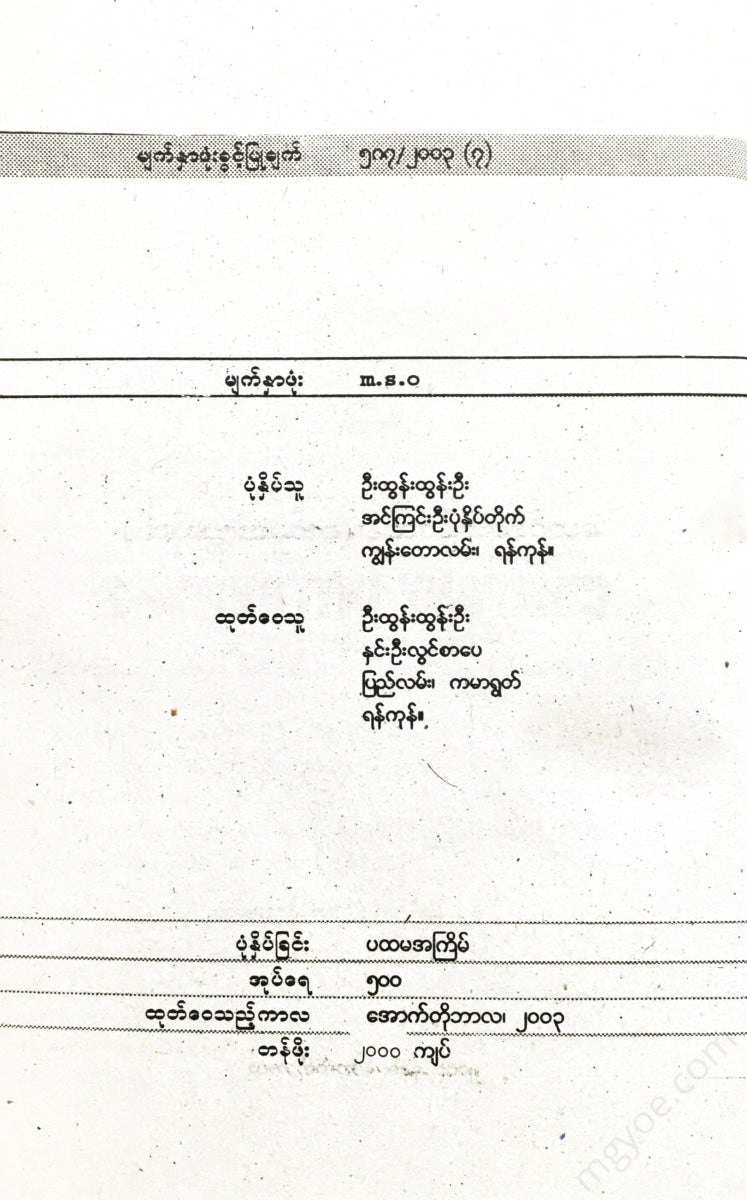 မျက်နှာဖုံးခွင့်ပြုချက် ၅၈၇/၂၀၀၃ (၇)
မျက်နှာဖုံး m.s.o
ပုံနှိပ်သူ ဦးထွန်းထွန်းဦး
အင်ကြင်းဦးပုံနှိပ်တိုက်
ကျွန်းတောလမ်း၊ ရန်ကုန်။
ထုတ်ဝေသူ ဦးထွန်းထွန်းဦး
နှင်းဦးလွင်စာပေ
ပြည်လမ်း၊ ကမာရွတ်
ရန်ကုန်။
ပုံနှိပ်ခြင်း ပထမအကြိမ်
အုပ်ရေ ၅၀၀
ထုတ်ဝေသည့်ကာလ အောက်တိုဘာလ၊ ၂၀၀၃
တန်ဖိုး ၂၀၀၀ ကျပ်
mgyoe.com